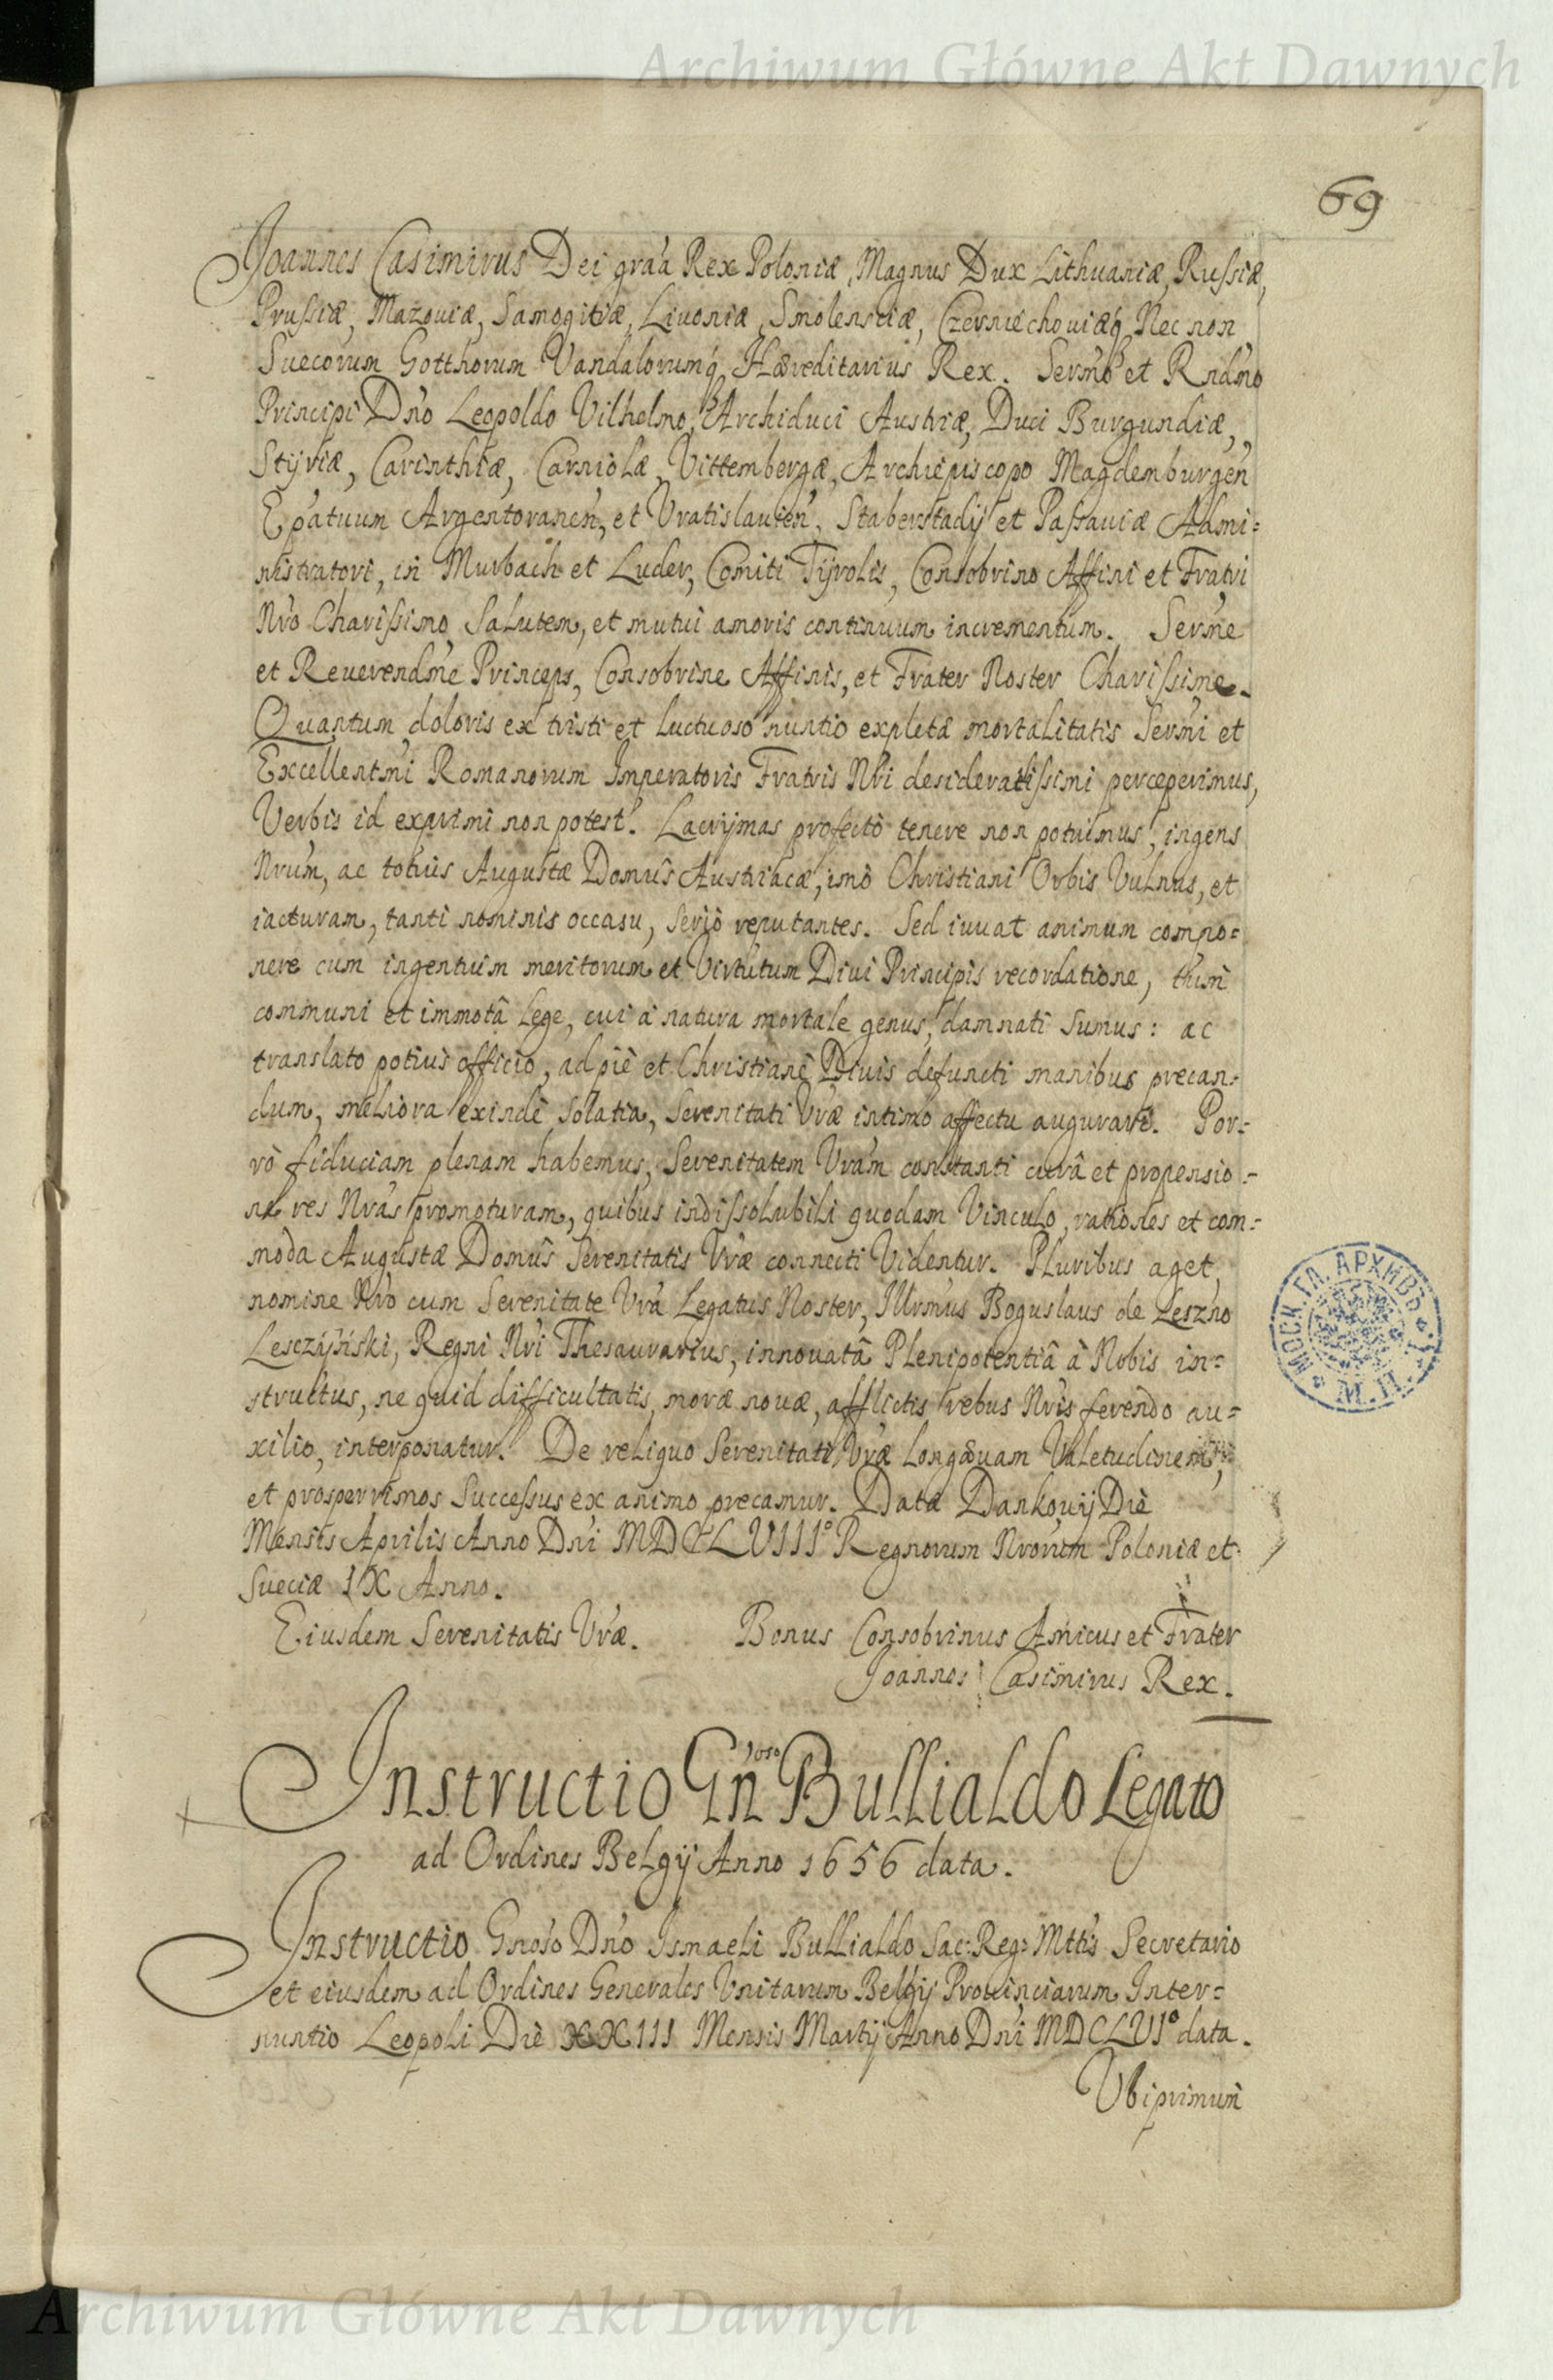 Archiwum Główne Akt Dawnych
69
Joannes Casimirus Dei gra'a Rex Poloniæ, Magnus Dux Lithuaniæ, Russiæ,
Prussiæ, Mazouiæ, Samogitiæ, Liuoniæ, Smolensciæ, Czerniechouiæq́, Nec non
Suecorum Gotthorum Vandalorumq́ Hæreditarius Rex. Serm̃o et Rndm̃o
Principi Dn̄o Leopoldo Vilhelmo, Archiduci Austriæ, Duci Burgundiæ,
Stijriæ, Carinthiæ, Carniolæ, Vittembergæ, Archiepiscopo Magdemburgeñ
Ep̄atuum Argentoraneñ, et Vratislauieñ. Staberstadij et Passauiæ Admi=
nistratori, in Murbach et Luder, Comiti Tijrolis, Consobrino Affini et Fratri
Nr̄o Charissimo Salutem, et mutui amoris continuum incrementum. Serm̃e
et Reuerendm̃e Princeps, Consobrine Affinis, et Frater Noster Charissime.
Quantum doloris ex tristi et luctuoso nuntio expletâ mortalitatis Serm̃i et
Excellentm̃i Romanorum Imperatoris Fratris Nr̄i desideratissimi perceperimus,
Verbis id exprimi non potest. Lacrijmas profectò tenere non potuimus, ingens
Nrum, ac totius Augustæ Domûs Austriacæ, imò Christiani Orbis Vulnus, et
iacturam, tanti nominis occasu, seriò reputantes. Sed iuuat animum compo=
nere cum ingentium meritorum et Virtutum Diui Principis recordatione, tum̄
communi et immotâ Lege, cui à natura mortale genus, damnati sumus: ac
translato potius officio, ad piè et Christianè Diuis defuncti manibus precan=
dum, meliora exinde solatia, Serenitati Vr̄æ intimo affectu augurari. Por=
rò fiduciam plenam habemus, Serenitatem Vr̄am constanti curâ et propensio=
ne res Nr̄as promoturam, quibus indissolubili quodam Vinculo, rationes et com=
moda Augustæ Domûs Serenitatis Vr̄æ connecti Videntur. Pluribus aget,
nomine Nr̄o cum Serenitate Vr̄a Legatus Noster, Illrm̃us Boguslaus de Leszno
Lesczÿński, Regni Nr̄i Thesaurarius, innouatâ Plenipotentiâ à Nobis in=
structus, ne quid difficultatis, moræ nouæ, afflictis rebus Nr̄is ferendo au=
xilio, interponatur. De reliquo Serenitati Vr̄æ Longæuam Valetudinem,
et prosperrimos Successus ex animo precamur. Datæ Dankouij Diè
Mensis Aprilis Anno Dn̄i MDCLVIII° Regnorum Nrorum Poloniæ et
Sueciæ IX Anno.
Eiusdem Serenitatis Vr̄æ. Bonus Consobrinus Amicus et Frater
Joannes Casimirus Rex.
Instructio Gn̄oso Bullialdo Legato
ad Ordines Belgij Anno 1656 data.
Instructio Gnoso Dn̄o Ismaeli Bullialdo Sac: Reg: Mttis Secretario
et eiusdem ad Ordines Generales Vnitarum Belgij Prouinciarum Inter=
nuntio Leopoli Diè XXIII Mensis Martij Anno Dn̄i MDCLVI° data.
Vbiprimum̄
МОСК. ГЛ. АРХИВЪ
М. И. Д.
Archiwum Główne Akt Dawnych